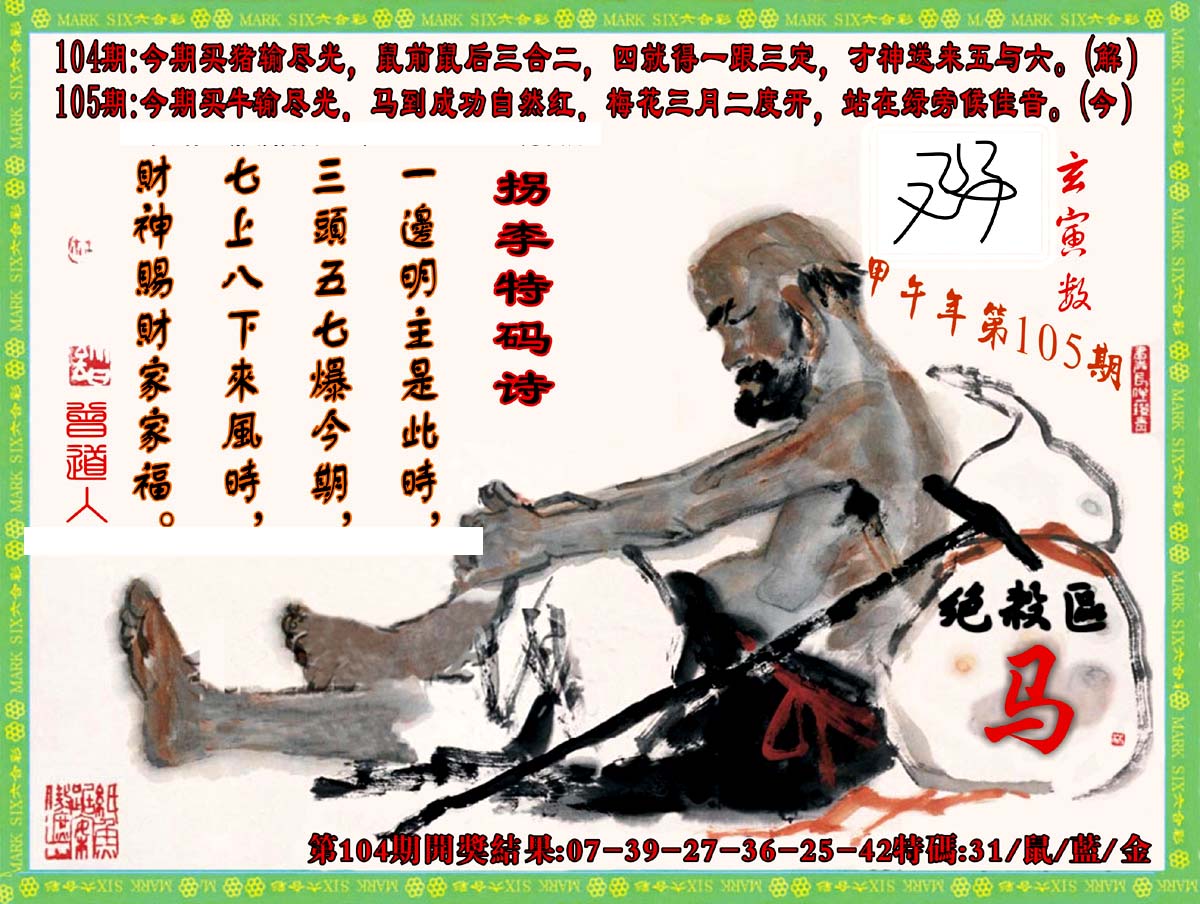 MARK SIX六合彩
104期:今期买猪输尽光，鼠前鼠后三合二，四就得一跟三定，才神送来五与六。(解)
105期:今期买牛输尽光，马到成功自然红，梅花三月二度开，站在绿旁候佳音。(今)
玄寅数
甲午年第105期
拐李特码诗
一邊明主是此時，
三頭五七爆今期，
七上八下來風時，
財神賜財家家福。
曾道人
绝殺區
马
第104期開獎結果:07-39-27-36-25-42特碼:31/鼠/藍/金